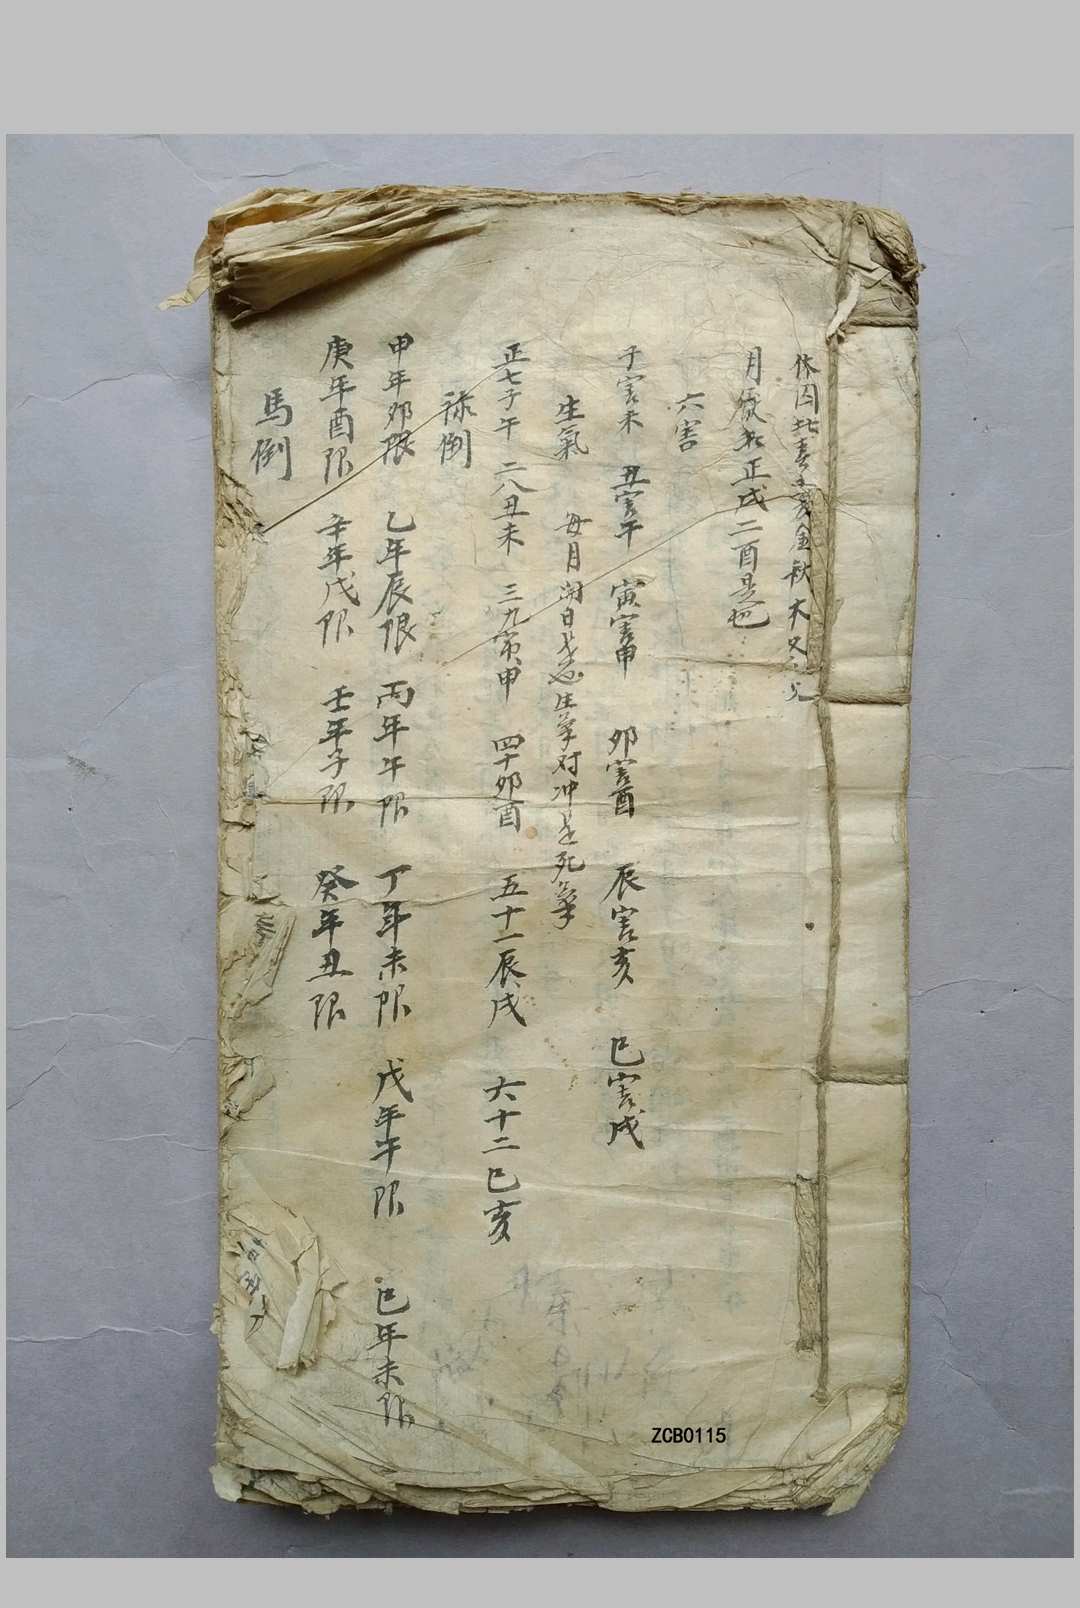 休囚 春 金秋木
月 正戌二酉是也
六害
子害未 丑害午 寅害申 卯害酉 辰害亥 巳害戌
生氣 每月開日 生 对冲是死氣
正七子午 二八丑未 三九寅申 四十卯酉 五十一辰戌 六十二巳亥
禄倒
甲年卯限 乙年辰限 丙年午限 丁年未限 戊年午限 巳年未限
庚年酉限 辛年戌限 壬年子限 癸年丑限
馬倒
ZCB0115